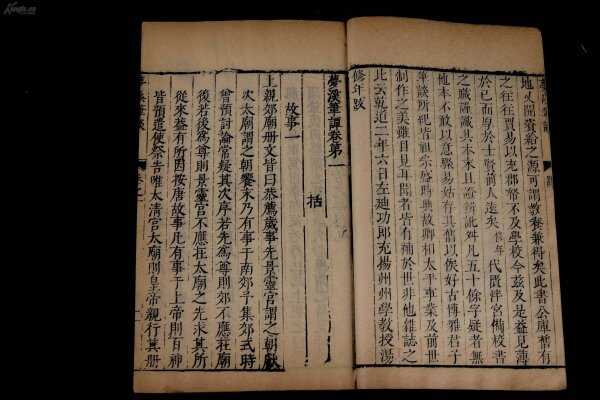 地以開資給之源可謂教養兼得矣此書公庫舊有
之往往貿易以充郡帑不及學校今茲及是益見薄
於己而厚於士賢前人遠矣
之職庸識其本末且證辨訛舛凡五十餘字疑者無
他本不敢以意驟易姑存其舊以俟好古博雅君子
筆談所紀皆祖宗盛時典故卿相太平事業及前世
制作之美雖目見耳聞者皆有補於世非他雜誌之
比云乾道二年六月日左迪功郎充揚州州學教授湯
修年跋
夢溪筆談卷第一
括
故事一
上親郊廟册文皆曰恭薦歲事先景靈宮謂之朝獻
次太廟謂之朝饗末乃有事于南郊予集郊式時
曾預討論常疑其次序若先為尊則郊不應在廟
後若後為尊則景靈宮不應在太廟之先求其所
從來蓋有所因按唐故事凡有事于上帝則百神
皆預遣使祭告唯太清宮太廟則皇帝親行其册